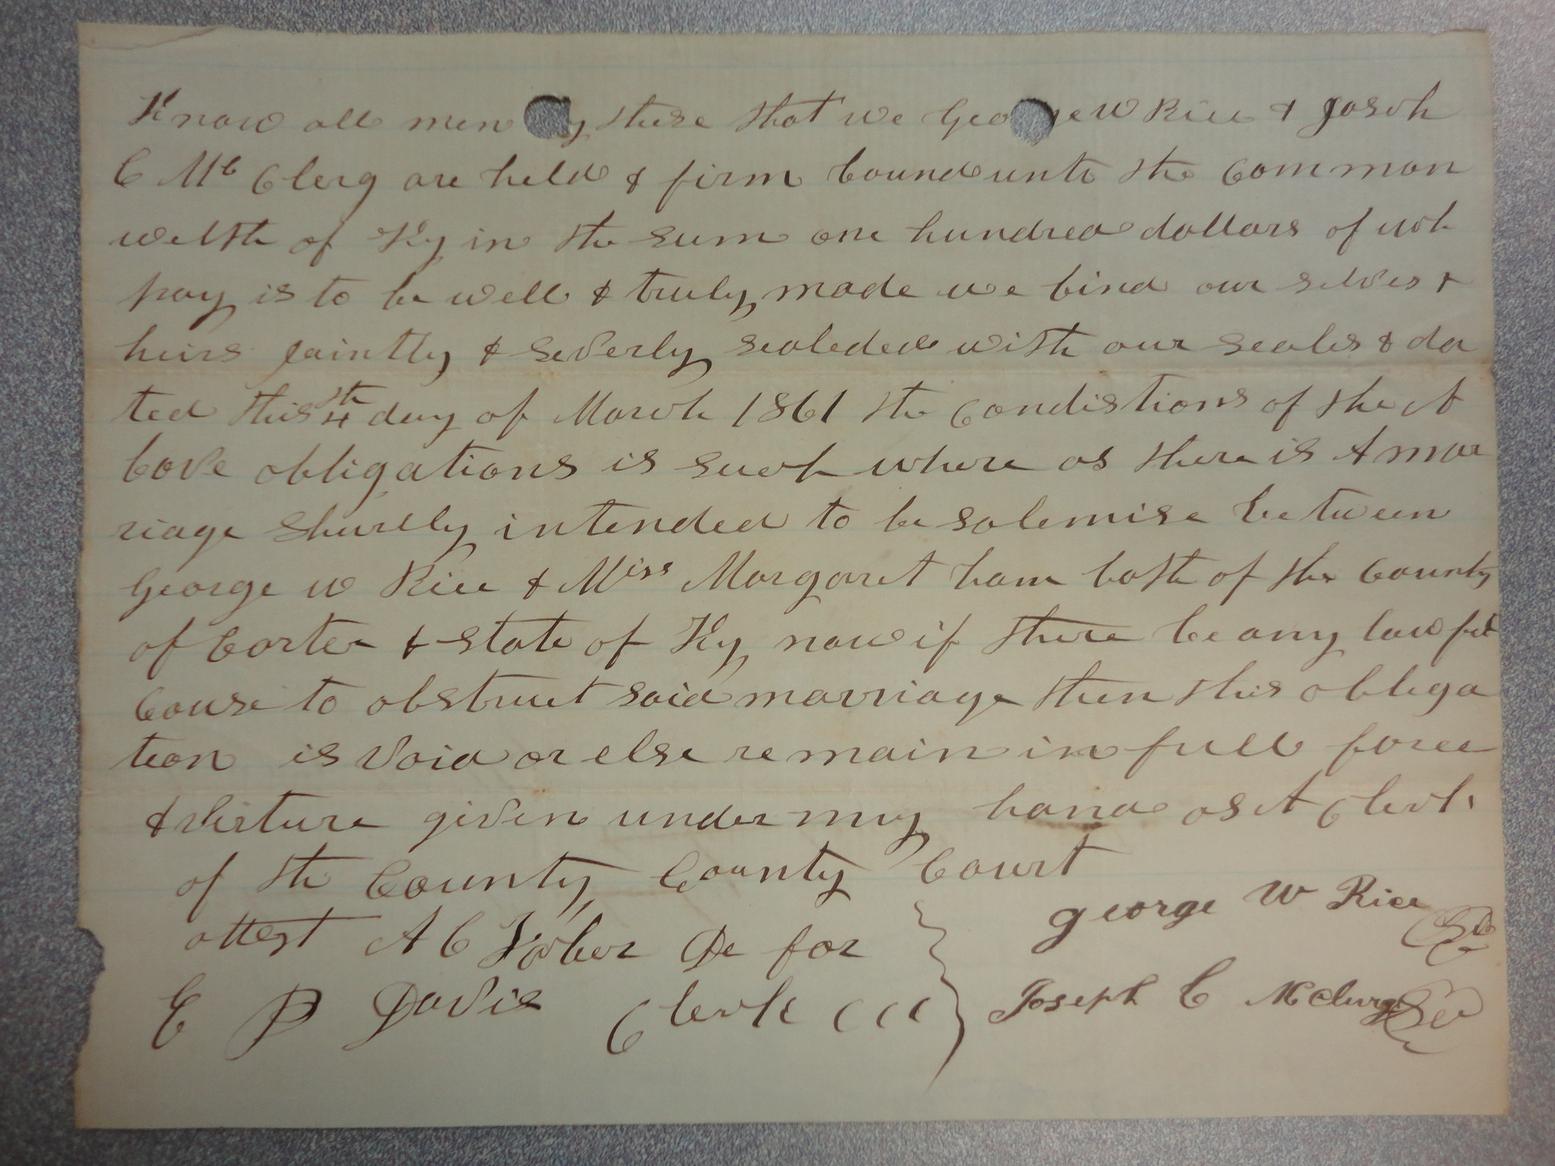 Know all men by these that we George W Rice & Joseh
C Mc Clerg are held & firm bound unto the common
welth of Ky in the sum one hundred dollars of wh
pay is to be well & truly made we bind our selves &
heirs jaintly & severly sealeded with our seales & da
ted this 4th day of March 1861 the condistions of the A
bove obligations is such where as there is A mar
riage shurtly intended to be solemise between
George W Rice & Miss Margaret ham both of the County
of Carter & state of Ky now if there be any lawful
cause to obstruct said marriage then this obliga
tion is void or else remain in full force
& virture given under my hand as A Clerk
of the County County Court
attest A C De for
E D Davis Clerk C C C
george W Rice
Joseph C McClurg